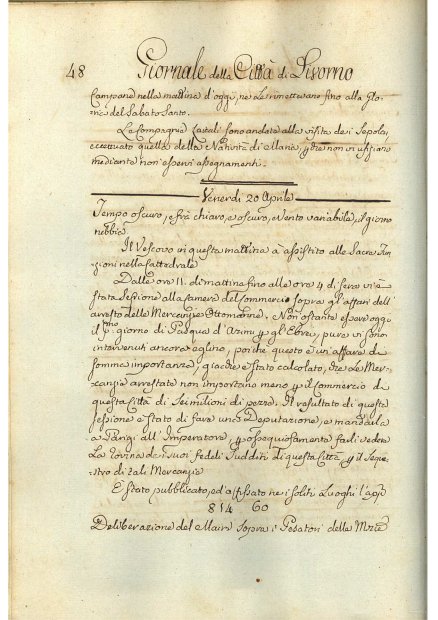 48 Giornale della Città di Livorno
Campane nella mattina d'oggi, ne le rimetteranno fino alla Glo-
ria del Sabato Santo.
Le Compagnie Laicali sono andate alla visita dei Sepolcri,
eccettuato quella della Natività di Maria,
mediante non esservi assegnamenti.
Venerdi 20 Aprile
Tempo oscuro, e frà chiaro, e oscuro, e Vento variabile, il giorno
nebbia
Il Vescovo in questa mattina à assistito alle Sacre Fun-
zioni nella Cattedrale
Dalle ore 11. di mattina fino alle ore 4 di sera vi è
stata Sessione alla Camera del Commercio sopra gl'affari dell'
arresto delle Mercanzie Ottomanne. Non ostante essere oggi
il p.mo giorno di Pasqua d'Azimi p gl'Ebrei, pure vi sono
intervenuti ancora eglino, poiché questo è un affare di
somma importanza, giacche è stato calcolato, che le Mer-
canzie arrestate non importano meno p il Commercio di
questa Città di Sei milioni di pezze. Il resultato di questa
sessione è stato di fare una Deputazione, e mandarla
a Parigi all'Imperatore, p ossequiosamente farli vedere
la rovina de suoi fedeli Sudditi di questa Città p il Seque-
stro di tali Mercanzie
È stato pubblicato, ed affissato ne i soliti Luoghi l'app.
814 60
Deliberazione del Maire sopra i Pesatori delle